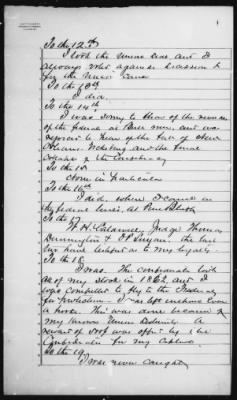 To the 12th
I took the Union side, and I
always voted against secession &
for the Union cause
To the 13th
I did.
To the 14th
I was sorry to hear of the
of the federals at Bull run, and was
rejoiced to hear of the fall of New
Orleans, Vicksburg and the final
collapse of the Confederacy
To the 15
None in particular
To the 16th
I did, when I came in
the federal lines, at Pine Bluff
To the 17
W. H. Calaway, Judge Thomas
&
can testify as to my loyalty.
To the 18
I was. The confederates took
all of my stock in 1862, and I
was compelled to fly to the Federals
for protection - I was left without even
a horse. This was done because of
my known Union
reward of $
was offered by the
Confederates for my capture.
To the 19
I was never caught